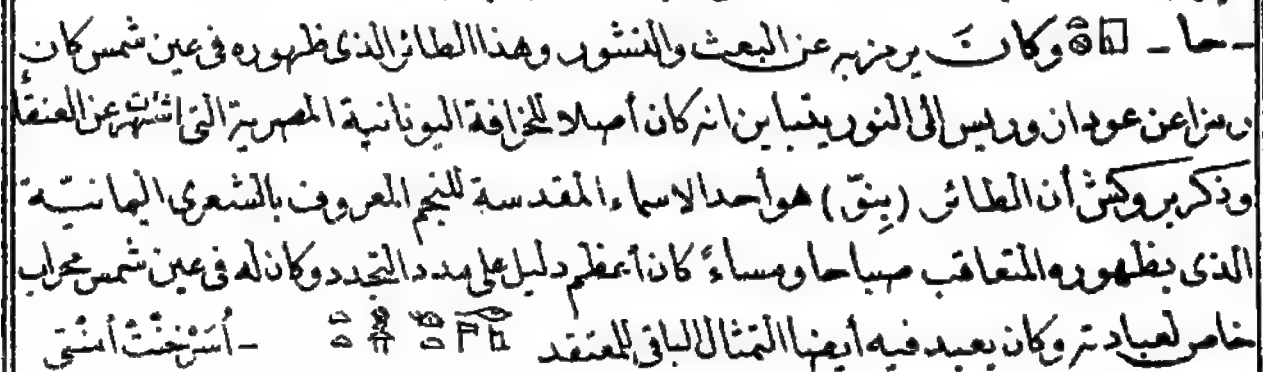 - حا - وكانت يرمز به عن البعث والنشور وهذا الطائر الذى ظهوره فى عين شمس كان
رمزا عن عود ازوريس الى النور يتباين انه كان أصلا للخرافة اليونانية المصرية التى اشتهرت عن العنقاء
وذكر بروكش أن الطائر (بِنوّ) هو أحد الاسماء المقدسة للنجم المعروف بالشعرى اليمانيّة
الذى بظهوره المتعاقب صباحا ومساءً كان أعظم دليل على مدد التجدد وكان له فى عين شمس محراب
خاص لعبادته وكان يعبد فيه أيضا التمثال الباقى للمعتقد - أُسَرْخِنْتْ أمنْتى